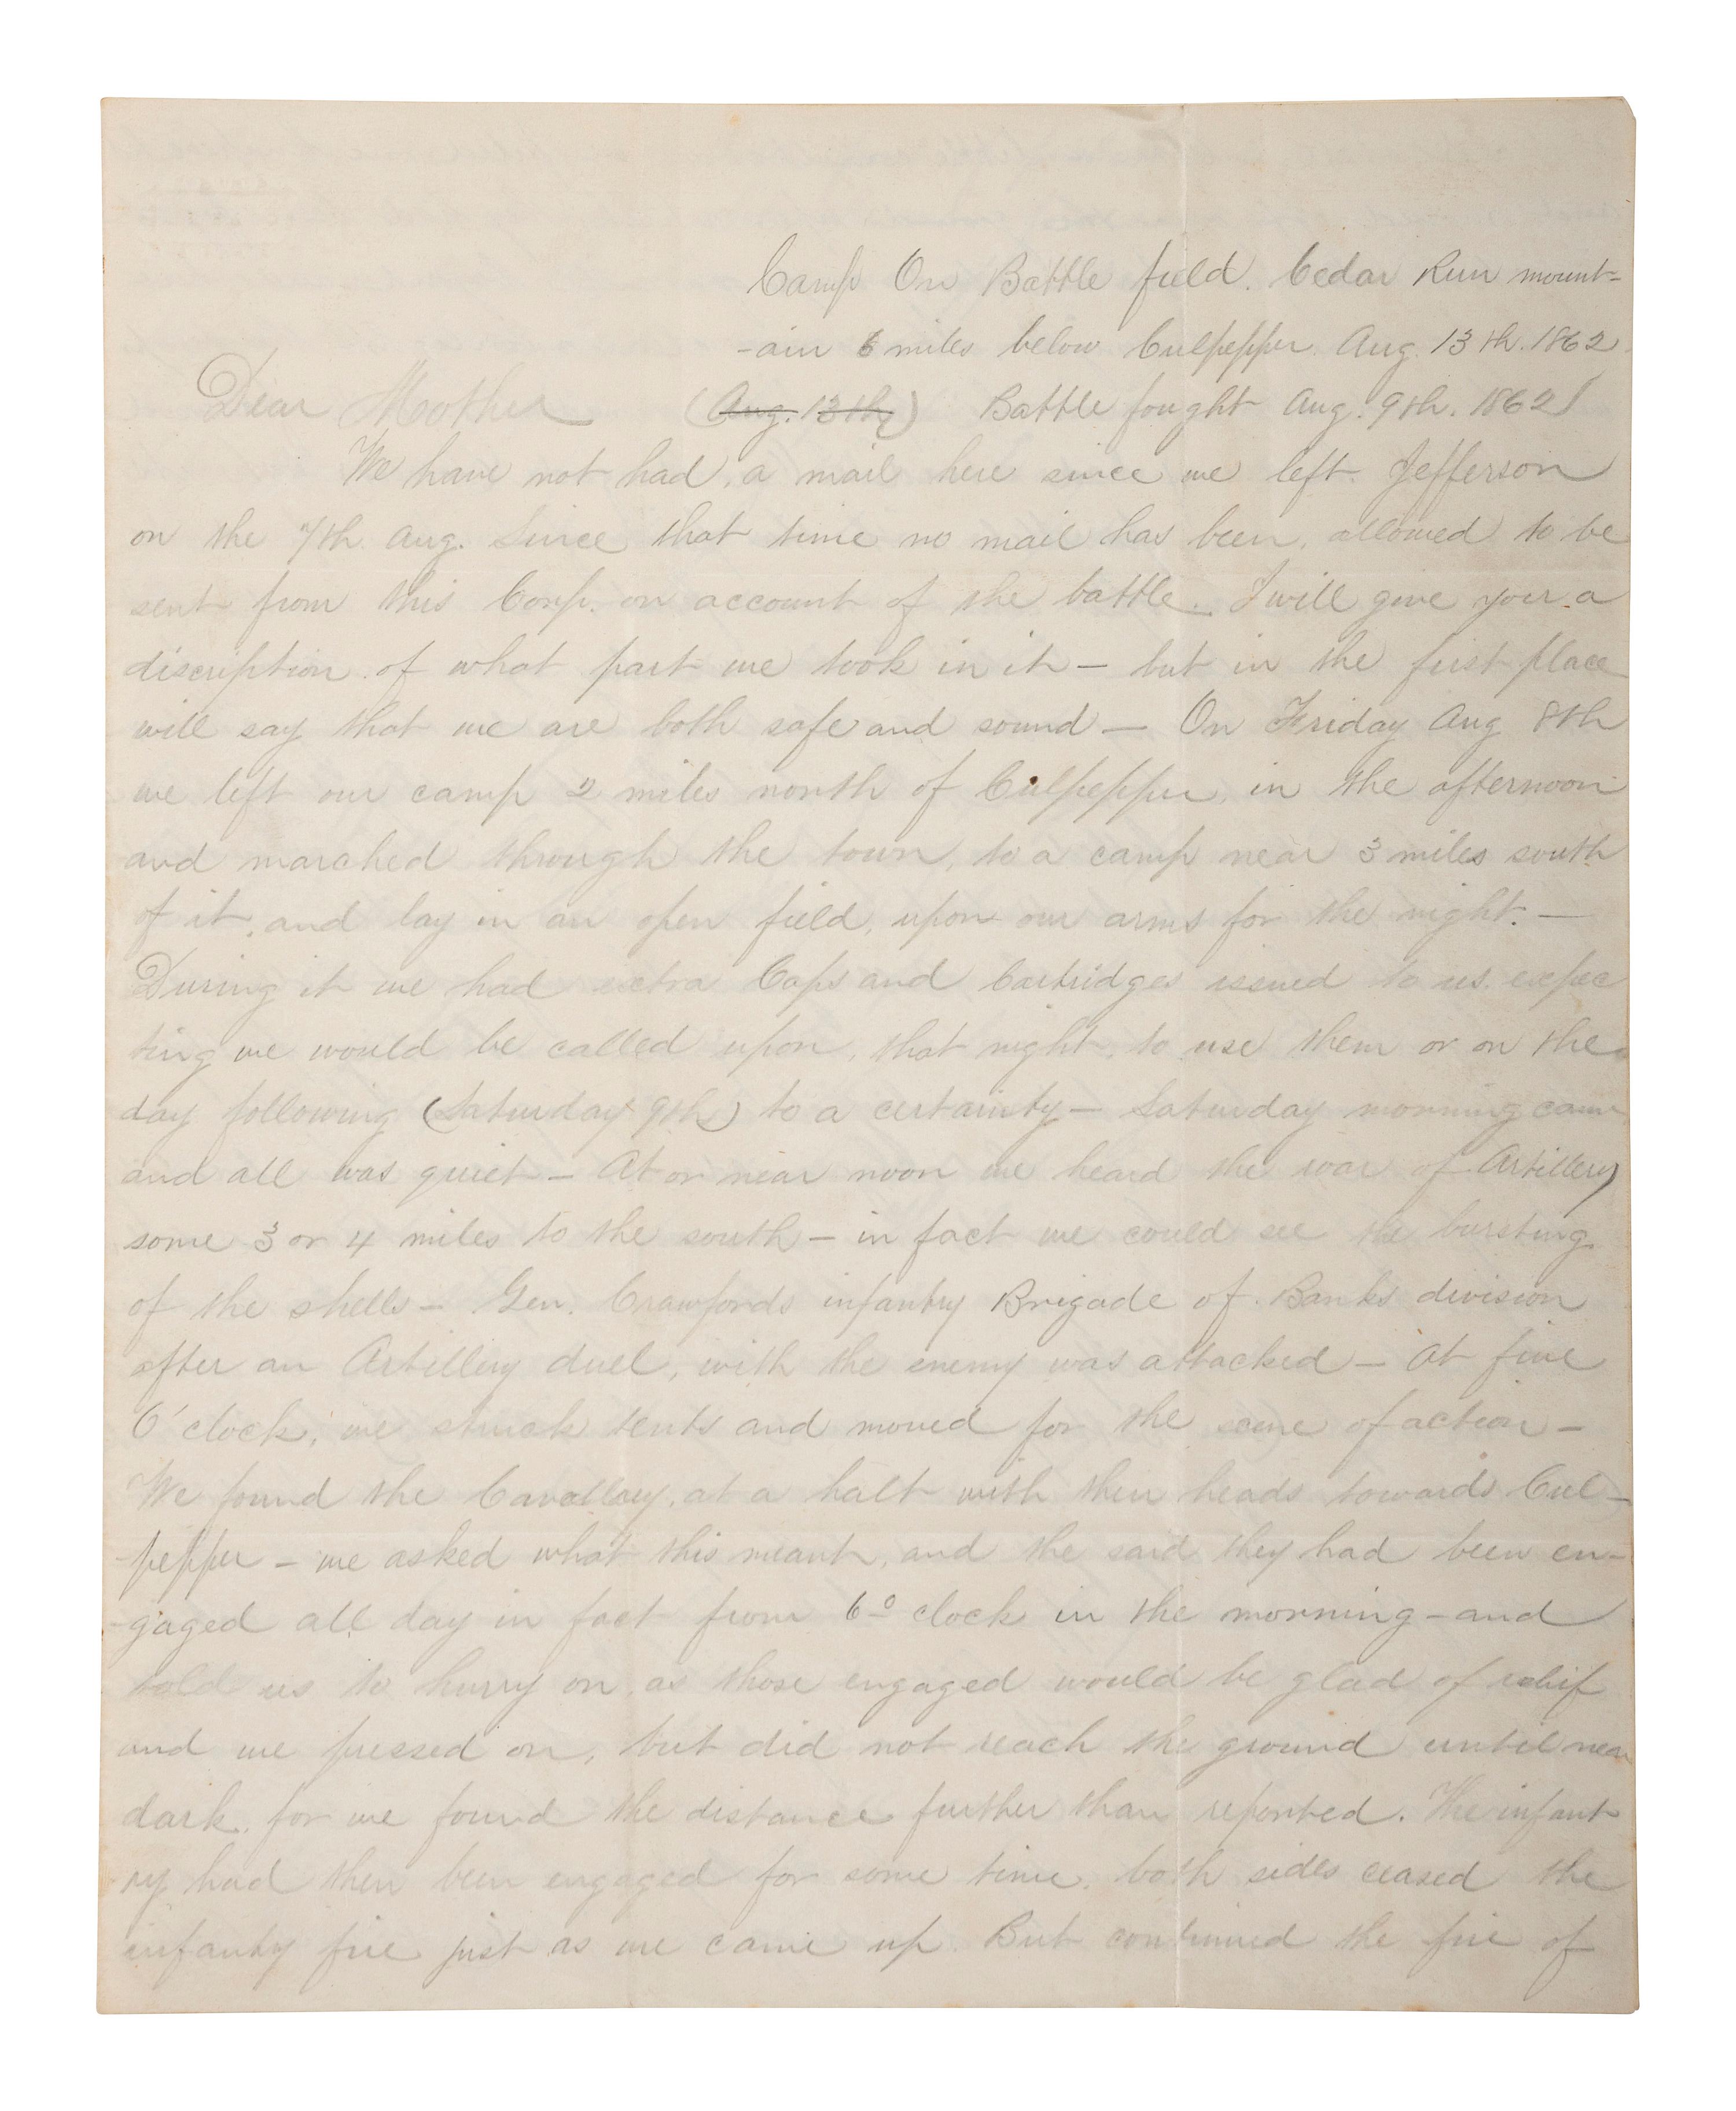 Camp On Battle field. Cedar Run mount-
-ain 6 miles below Culpepper. Aug. 13th. 1862
Dear Mother (Aug. 13th) Battle fought Aug. 9th. 1862
We have not had, a mail here since we left Jefferson
on the 7th. Aug. Since that time no mail has been, allowed to be
sent from this Corp. on account of the battle. I will give you a
discription of what part we took in it — but in the first place
will say that we are both safe and sound — On Friday Aug 8th
we left our camp 2 miles north of Culpepper, in the afternoon
and marched through the town, to a camp near 3 miles south
of it, and lay in an open field, upon our arms for the night. —
During it we had extra Caps and Cartridges issued to us, expec
ting we would be called upon, that night, to use them or on the
day following (Saturday 9th) to a certainty — Saturday morning came
and all was quiet — At or near noon we heard the roar of Artillery
some 3 or 4 miles to the south — in fact we could see the bursting
of the shells — Gen. Crawfords infantry Brigade of Banks division
after an Artillery duel, with the enemy was attacked — At five
O'clock, we struck tents and moved for the scene of action —
We found the Cavallary, at a halt with their heads towards Cul-
-pepper — we asked what this meant, and the said they had been en-
-gaged all day in fact from 6 o clock in the morning — and
told us to hurry on, as those engaged would be glad of relief
and we pressed on, but did not reach the ground until near
dark, for we found the distance further than reported. The infant
ry had then been engaged for some time, both sides ceased the
infantry fire just as we came up. But continued the fire of